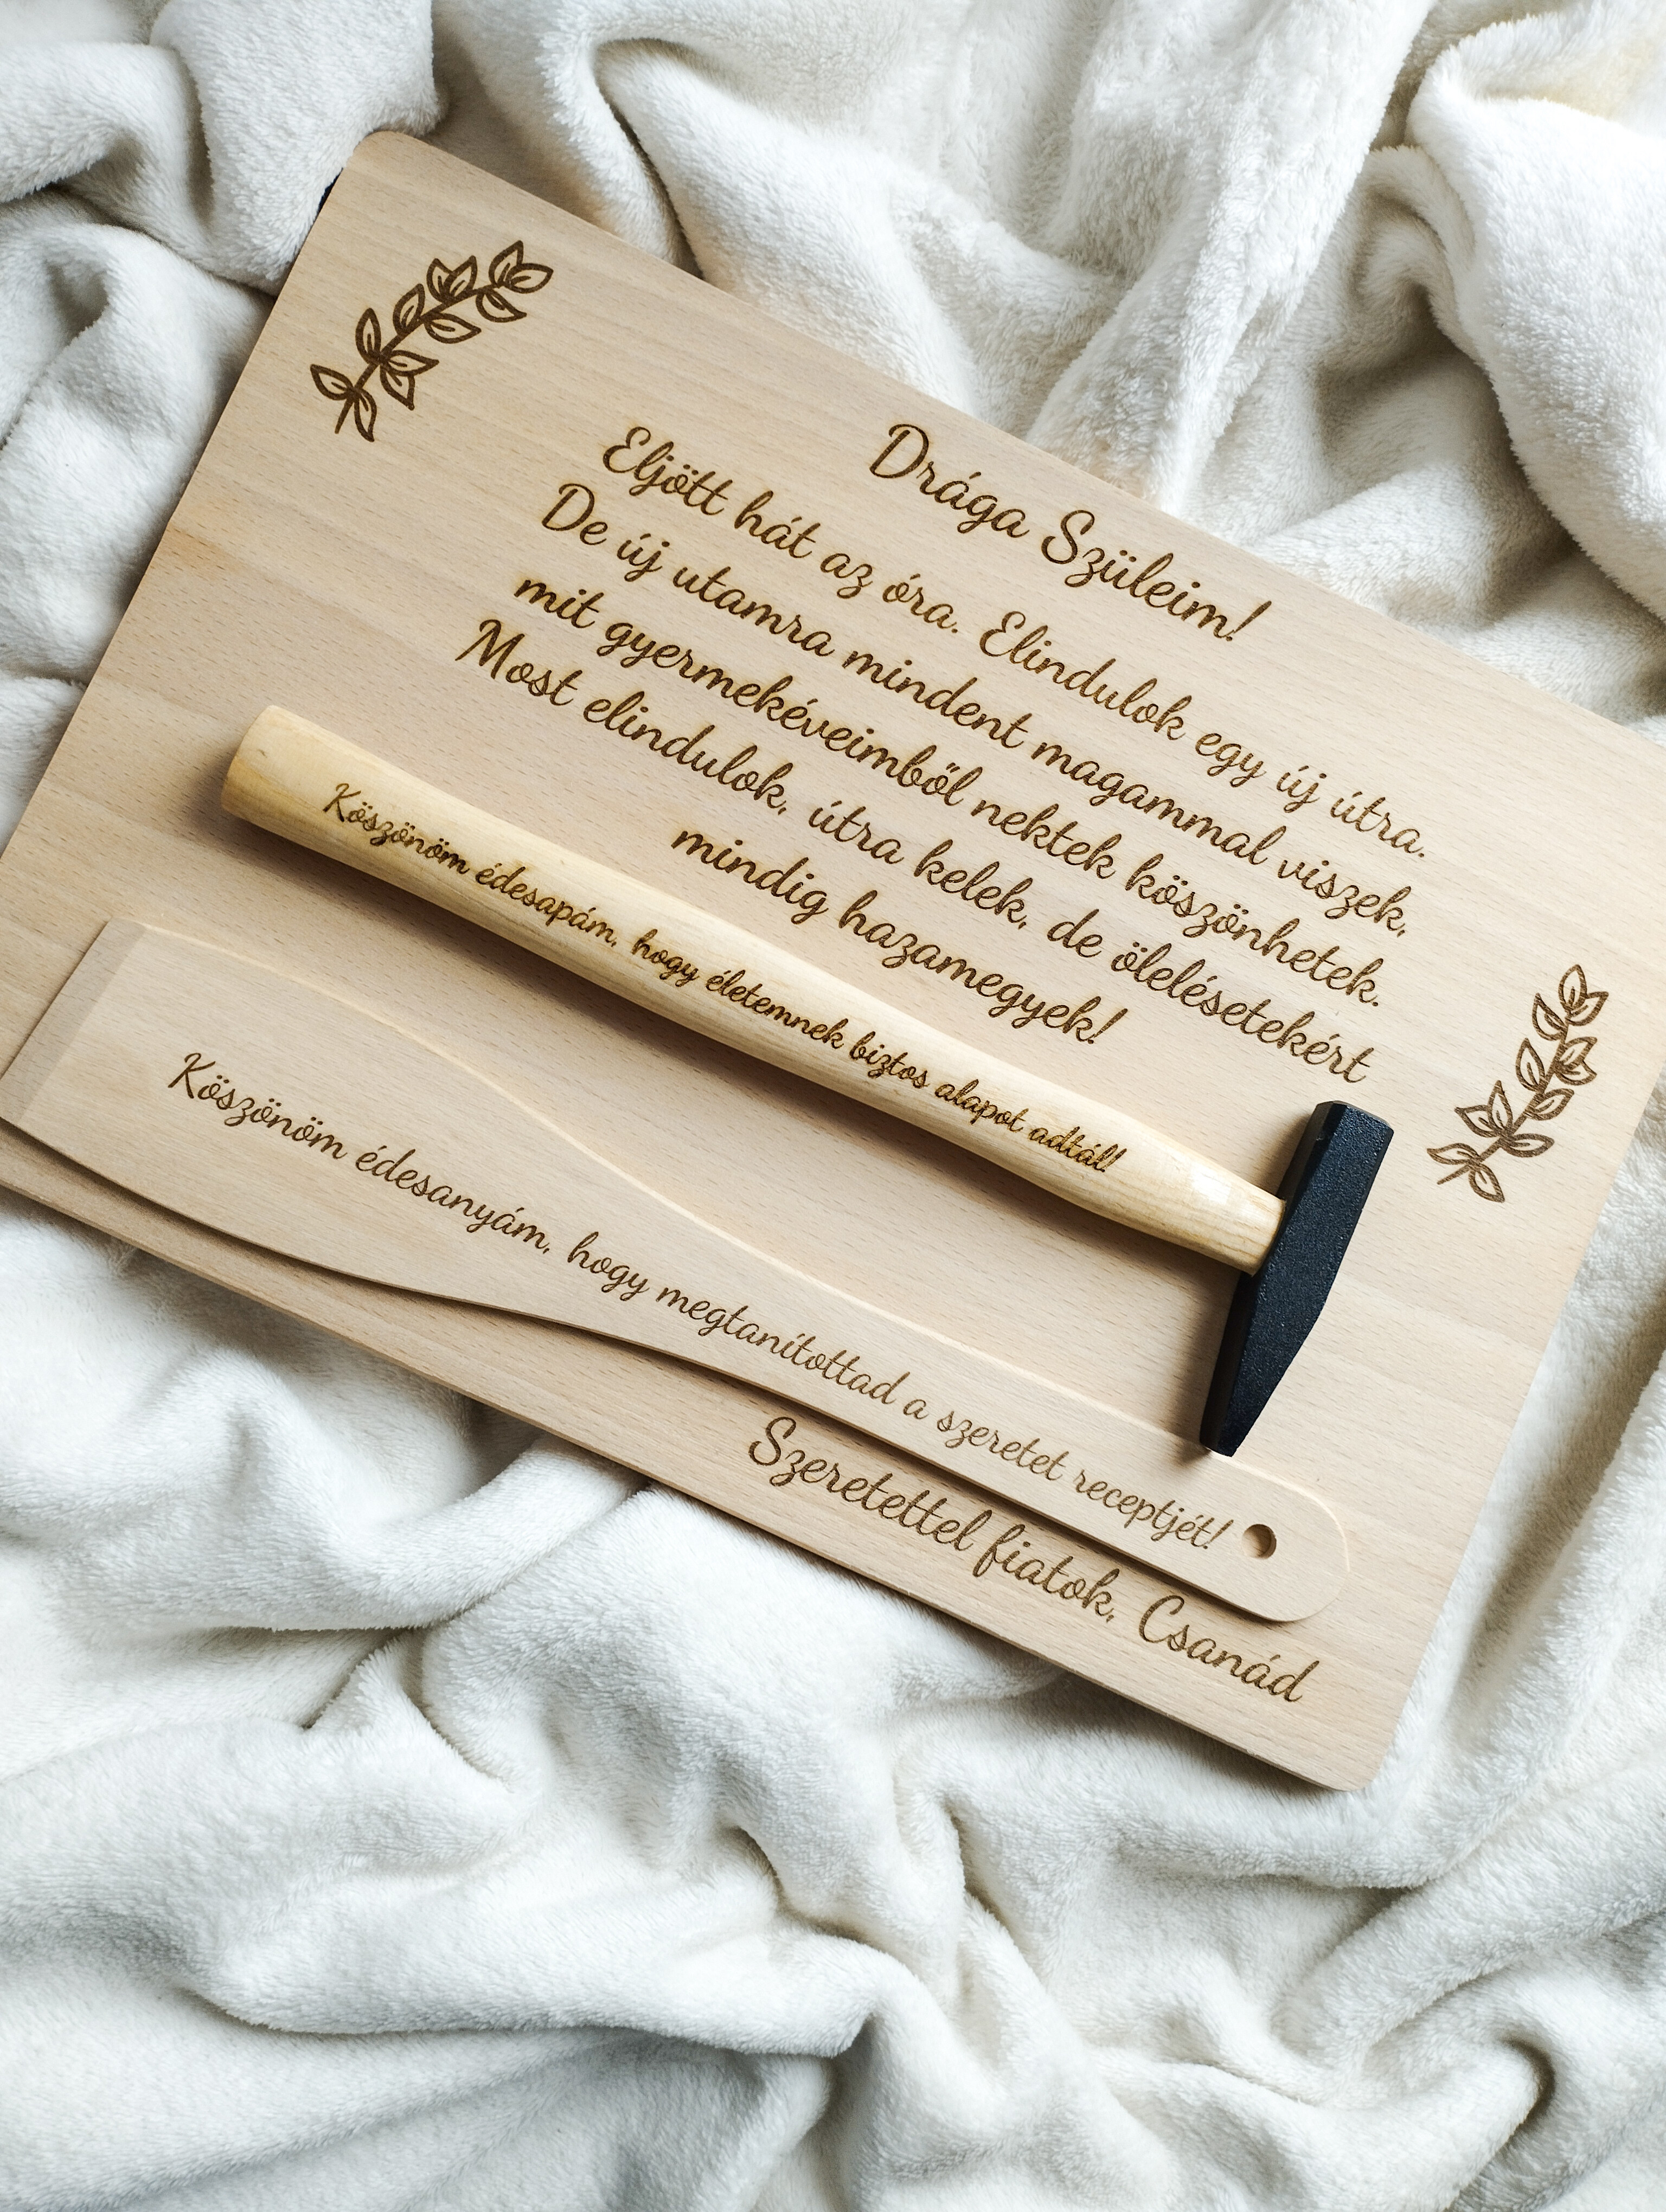 Drága Szüleim!
Eljött hát az óra. Elindulok egy új útra.
De új utamra mindent magammal viszek,
mit gyermekéveimből nektek köszönhetek.
Most elindulok, útra kelek, de ölelésetekért
mindig hazamegyek!
Köszönöm édesapám, hogy életemnek biztos alapot adtál!
Köszönöm édesanyám, hogy megtanítottad a szeretet receptjét!
Szeretettel fiatok, Csanád